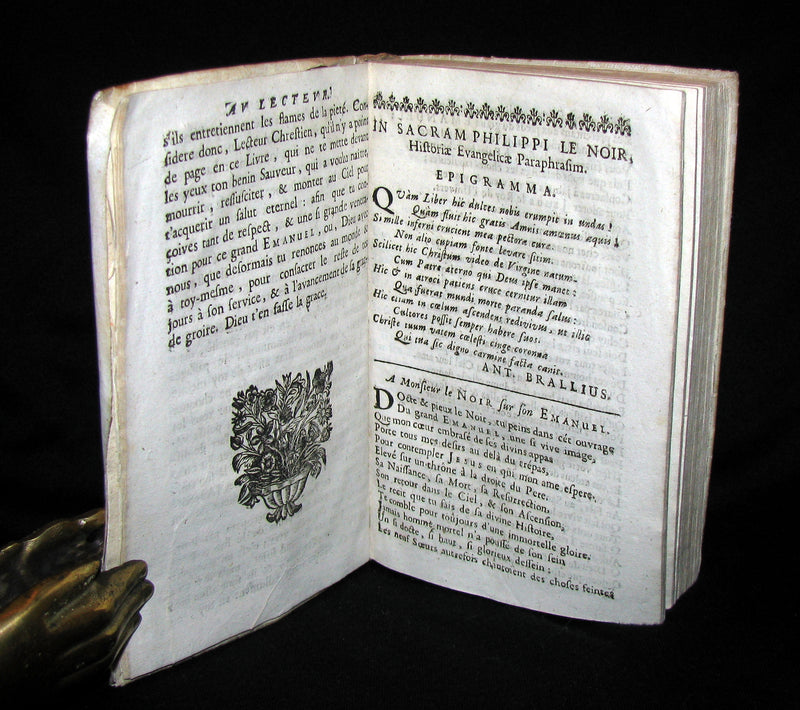 AV LECTEVR.
s'ils entretiennent les flames de la pieté. Con-
sidere donc, Lecteur Chrestien, qu'il n'y a point
de page en ce Livre, qui ne te mette devant
les yeux ton benin Sauveur, qui a voulu naitre,
mourrir, ressusciter, & monter au Ciel pour
t'acquerir un salut eternel: afin que tu con-
çoives tant de respect, & une si grande venera-
tion pour ce grand EMANUEL, ou, Dieu avec
nous, que desormais tu renonces au monde &
à toy-mesme, pour consacrer le reste de tes
jours à son service, & à l'avancement de sa gran-
de groire. Dieu t'en fasse la grace,
IN SACRAM PHILIPPI LE NOIR,
Historiæ Evangelicæ Paraphrasim.
EPIGRAMMA.
QVàm Liber hic dulces nobis erumpit in undas!
Quàm fluit hic gratis Amnis amœnus aquis!
Si mille inferni crucient mea pectora curæ,
Non alio cupiam fonte levare sitim.
Scilicet hic Christum video de Virgine natum,
Cum Patre æterno qui Deus ipse manet:
Hic & in atroci patiens cruce cernitur illam
Qua fuerat mundi morte paranda salus:
Hic etiam in cœlum ascendens redivivus, ut illic
Cultores possit semper habere suos.
Christe tuum vatem cœlesti cinge corona
Qui tua sic digno carmine facta canit.
ANT. BRALLIUS.
A Monsieur le NOIR sur son EMANUEL.
DOcte & pieux le Noir, tu peins dans cét ouvrage
Du grand EMANUEL, une si vive image,
Que mon cœur embrasé de ses divins appas
Porte tous mes desirs au delà du trépas,
Pour contempler JESUS en qui mon ame espere,
Elevé sur un thrône à la droite du Pere.
Sa Naissance, sa Mort, sa Resurrection,
Son retour dans le Ciel, & son Ascension,
Le recit que tu fais de sa divine Histoire,
Te comble pour toûjours d'une immortelle gloire.
Jamais homme mortel n'a poussé de son sein
Un si docte, si haut, si glorieux dessein:
Les neuf Sœurs autrefois chantoient des choses feintes